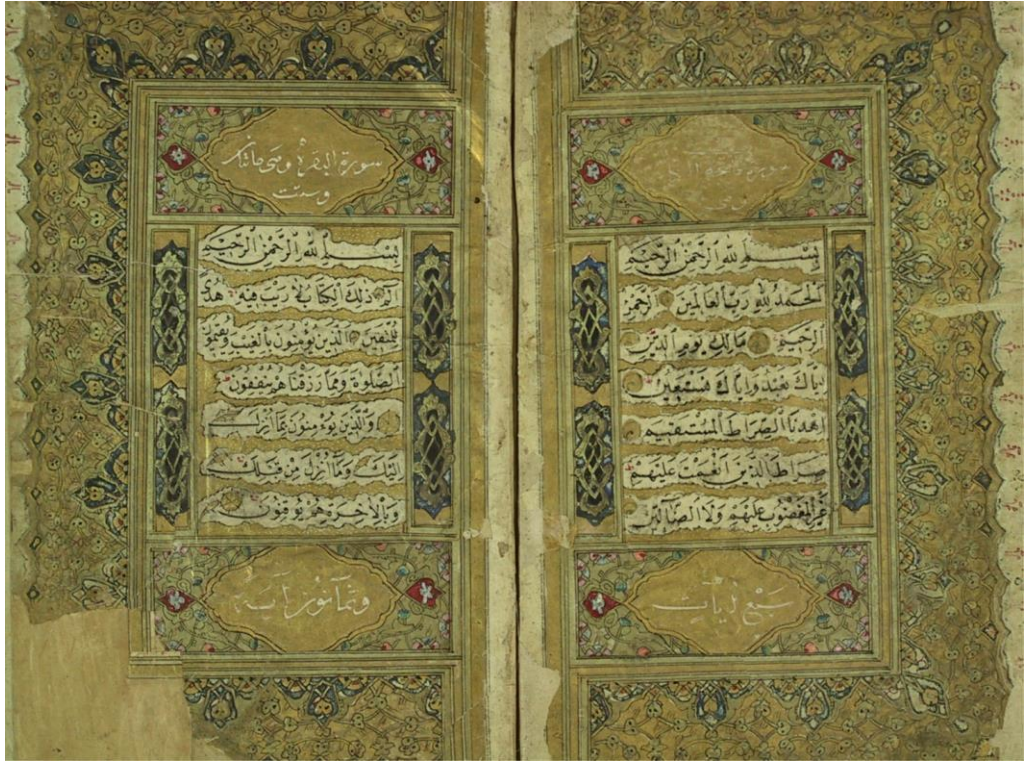 سورة فاتحة
بِسْــمِ اللهِ الرَّحْمٰنِ الرَّحِيْمِ
اَلْحَمْدُ لِلّٰهِ رَبِّ الْعَالَمِيْنَ الرَّحْمٰنِ
الرَّحِيْمِ مَالِكِ يَوْمِ الدِّيْنِ
اِيَّاكَ نَعْبُدُ وَاِيَّاكَ نَسْتَعِيْنُ
اِهْدِنَا الصِّرَاطَ الْمُسْتَقِيْمَ
صِرَاطَ الَّذِيْنَ اَنْعَمْتَ عَلَيْهِمْ
غَيْرِ الْمَغْضُوْبِ عَلَيْهِمْ وَلَا الضَّالِّيْنَ
سبع آيات
سورة البقرة وهي مائتان
وست
بِسْــمِ اللهِ الرَّحْمٰنِ الرَّحِيْمِ
الٓمٓ ذٰلِكَ الْكِتَابُ لَا رَيْبَ فِيْهِ هُدًى
لِلْمُتَّقِيْنَ اَلَّذِيْنَ يُؤْمِنُوْنَ بِالْغَيْبِ وَيُقِيْمُوْنَ
الصَّلٰوةَ وَمِمَّا رَزَقْنَاهُمْ يُنْفِقُوْنَ
وَالَّذِيْنَ يُؤْمِنُوْنَ بِمَا اُنْزِلَ
اِلَيْكَ وَمَا اُنْزِلَ مِنْ قَبْلِكَ
وَبِالْاٰخِرَةِ هُمْ يُوْقِنُوْنَ
وثمانون آية